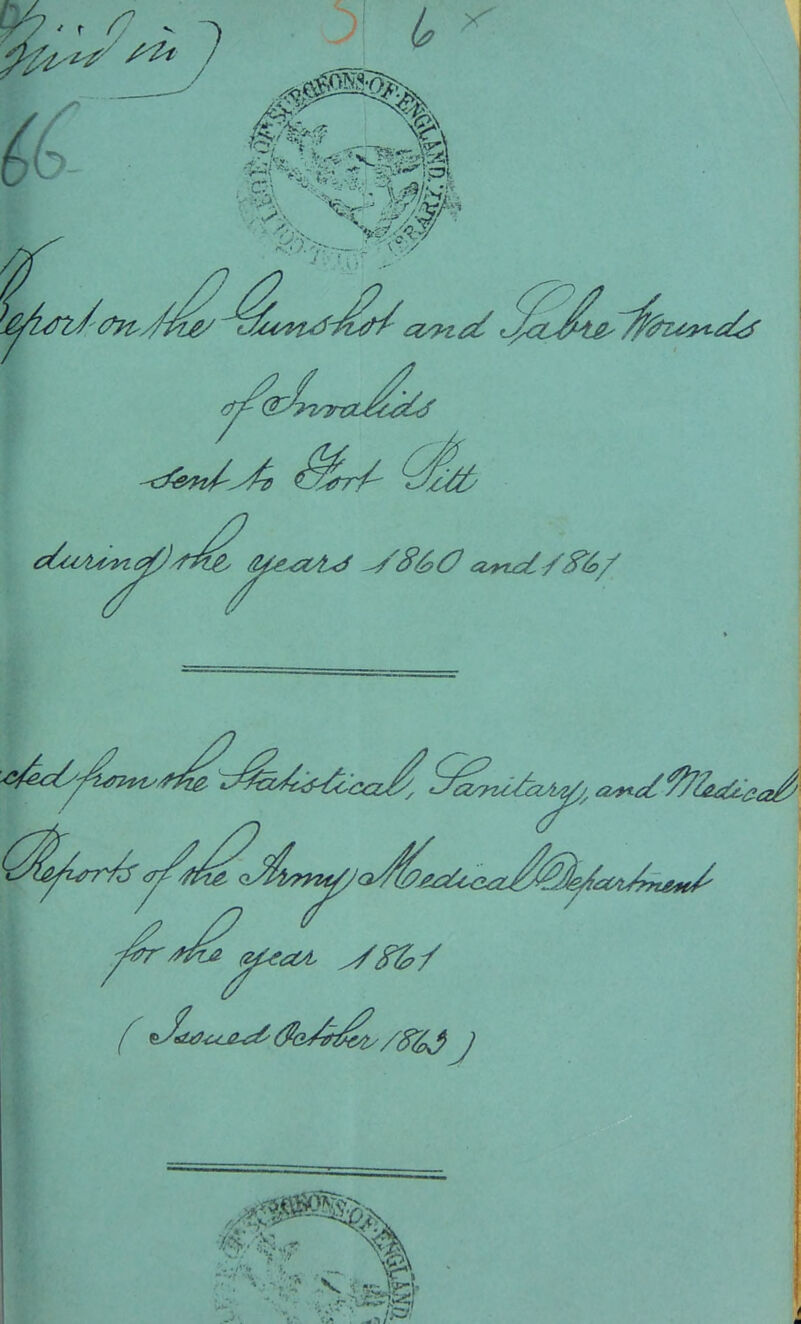 5 6 x
in)
66
COLLEGE OF SURGEONS OF ENGLAND. LIBRARY
Report on the Gunshot and Sabre Wounds
of Invalids
sent to Fort Pitt
during the years 1860 and 1861
cted from the Statistical, Sanitary, and Medical
Reports of the Army Medical Department
for the year 1861
(Issued October 1863)
SURGEONS OF ENGLAND